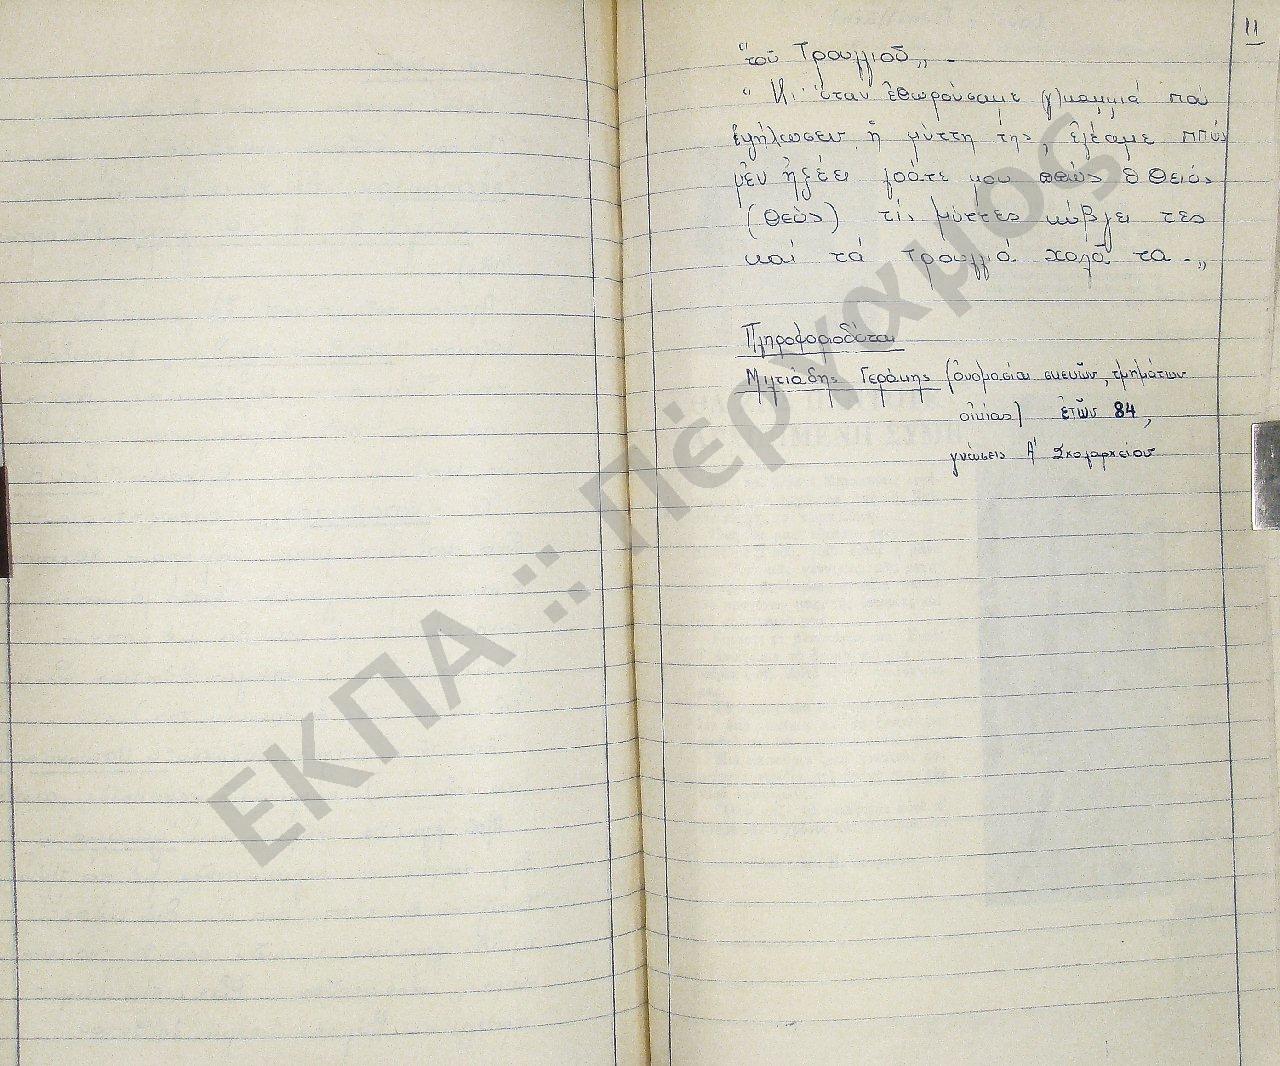 11
"τοῦ Τρουλλιοῦ„ -
" Κι' ὅταν ἐθωρούσαμε (γ)καμμιά πού
ἐψήλωσεν ἡ μύττη της, ἐλέαμε ππώς
μὲν ἠξέει γοάτε μου ππώς ὁ Θειός
(Θεὸς) τίς μύττες κόβγει τες
καί τά τρουλλιά χαλᾶ τα -„
Πληροφοριοδόται
Μιλτιάδης Γεράκης (ὀνομασίαι σκευῶν, τμημάτων
οἰκίας) ἐτῶν 84,
γνώσεις Α' Σχολαρχείου
ΕΚΠΑ :: Πέργαμος